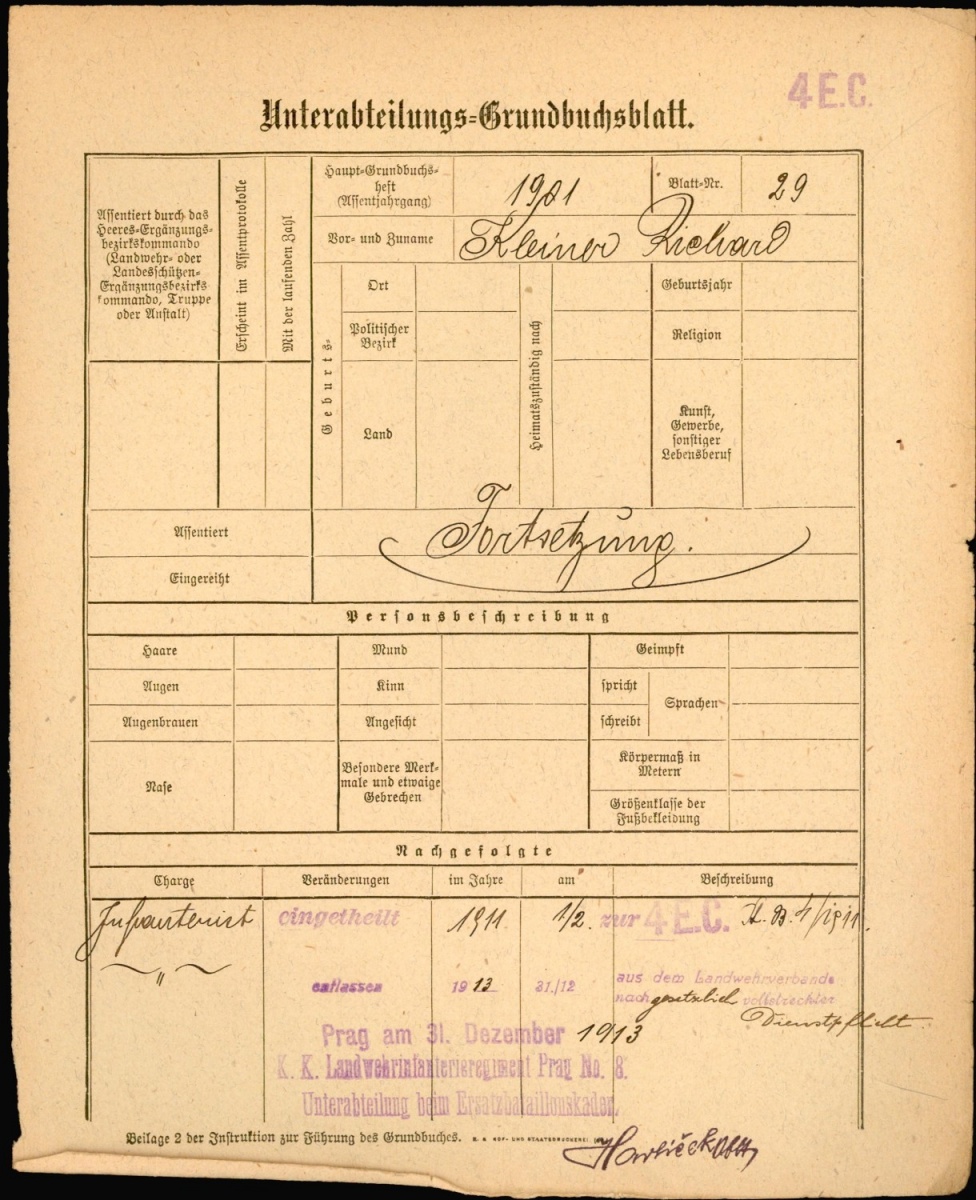 4 E.C.
Unterabteilungs-Grundbuchsblatt.
Assentiert durch das
Heeres-Ergänzungs-
bezirkskommando
(Landwehr- oder
Landesschützen-
Ergänzungsbezirks
kommando, Truppe
oder Anstalt)
Erscheint im Assentprotokolle
Mit der laufenden Zahl
Haupt-Grundbuchs-
heft
(Assentjahrgang)
1901
Blatt-Nr.
29
Vor- und Zuname
Kleiner Richard
Geburts-
Ort
Politischer
Bezirk
Land
Heimatszuständig nach
Geburtsjahr
Religion
Kunst,
Gewerbe,
sonstiger
Lebensberuf
Assentiert
Fortsetzung.
Eingereiht
Personsbeschreibung
Haare
Mund
Geimpft
Augen
Kinn
spricht
Sprachen
Augenbrauen
Angesicht
schreibt
Nase
Besondere Merk-
male und etwaige
Gebrechen
Körpermaß in
Metern
Größenklasse der
Fußbekleidung
Nachgefolgte
Charge
Veränderungen
im Jahre
am
Beschreibung
Infanterist
eingetheilt
1911.
1/2.
zur 4 E.C.
"
entlassen
1913
31./12
aus dem Landwehrverbande
nach gesetzlich vollstreckter
Dienstpflicht.
Prag am 31. Dezember 1913
K. K. Landwehrinfanterieregiment Prag No. 8.
Unterabteilung beim Ersatzbataillonskader.
Beilage 2 der Instruktion zur Führung des Grundbuches.
K. K. HOF- UND STAATSDRUCKEREI